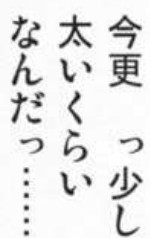 今更　っ少し
太いくらい
なんだっ……